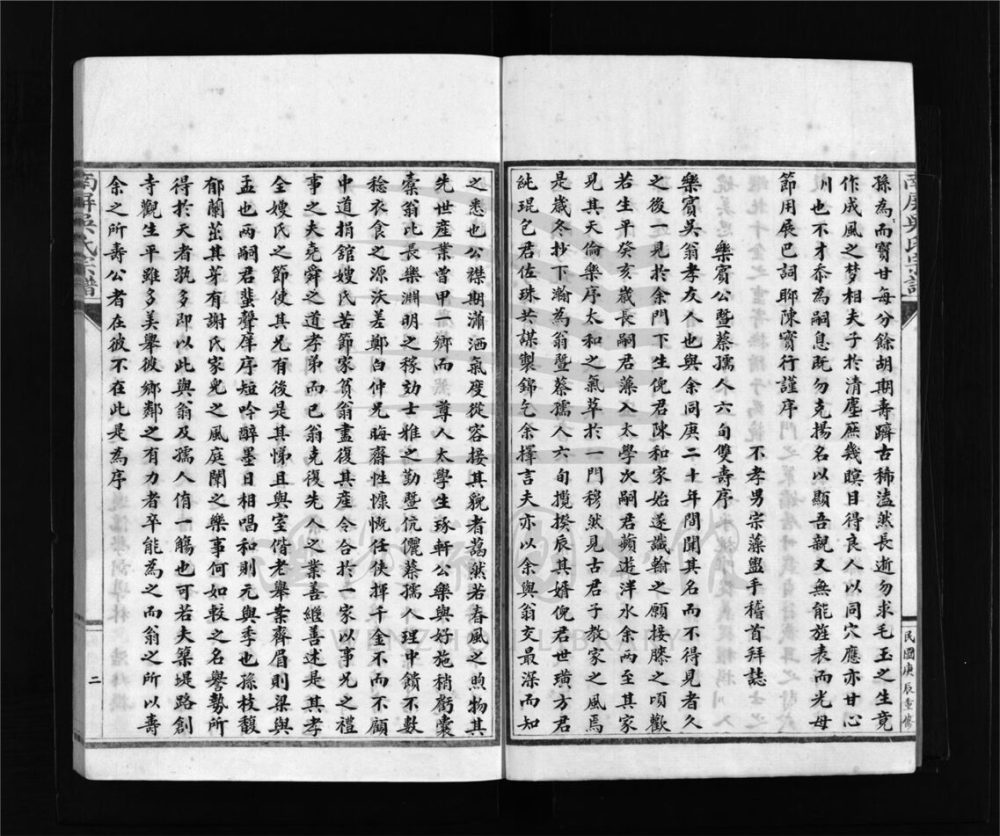 南屏吳氏宗譜
民國庚辰重修
孫為而實甘每分餘胡期壽躋古稀溘然長逝勿求毛玉之生竟
作成風之梦相夫子於清塵庶幾瞑目得良人以同穴應亦甘心
訓也不才忝為嗣息既勿克揚名以顯吾親又無能旌表而光母
節用展巴詞聊陳實行謹序　不孝男宗藻盥手稽首拜誌
樂賓公暨蔡孺人六旬雙壽序
樂賓吳翁孝友人也與余同庚二十年間聞其名而不得見者久
之後一見於余門下生倪君陳和家始遂識翰之願接膝之頃歡
若生平癸亥歲長嗣君藻入太學次嗣君蘋遊泮水余兩至其家
見其天倫樂序太和之氣萃於一門穆然見古君子教家之風焉
是歲冬抄下瀚為翁暨蔡孺人六旬攬揆辰其婿倪君世璜方君
純琨包君佐珠共謀製錦乞余擇言夫亦以余與翁交最深而知
之悉也公襟期瀟洒氣度從容接其貌者藹然若春風之煦物其
先世產業曾甲一鄉而　尊人太學生琢軒公樂與好施稍虧囊
橐翁比長樂淵明之稼効士雅之勤暨伉儷蔡孺人理中饋不數
稔衣食之源沃差鄭白仲兄晦齋性慷慨任俠揮千金不而不顧
中道捐舘嫂氏苦節家貧翁盡復其產令合於一家以事兄之禮
事之夫堯舜之道孝弟而已翁克復先人之業善繼善述是其孝
全嫂氏之節使其兄有後是其悌且與室偕老舉案齊眉則梁與
孟也兩嗣君蜚聲庠序短吟醉墨日相唱和則元與季也孫枝馥
郁蘭茁其芽有謝氏家兒之風庭闈之樂事何如較之名譽勢所
得於天者孰多即以此與翁及孺人侑一觴也可若夫築堤路創
寺觀生平雖多美舉彼鄉鄰之有力者卒能為之而翁之所以壽
余之所壽公者在彼不在此是為序
南屏吳氏宗譜
二